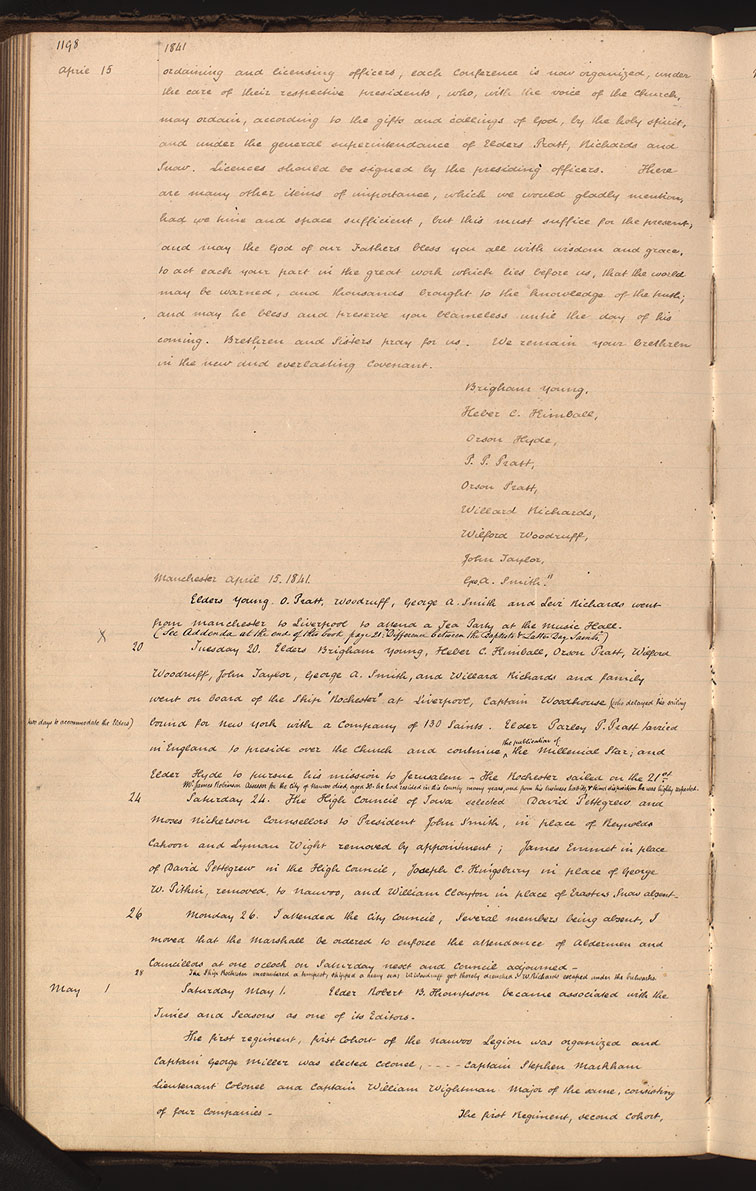 1198
1841
April 15
ordaining and licensing officers, each Conference is now organized, under
the care of their respective presidents, who, with the voice of the Church,
may ordain, according to the gifts and callings of God, by the holy spirit,
and under the general superintendance of Elders Pratt, Richards and
Snow. Licences should be signed by the presiding officers. There
are many other items of importance, which we would gladly mention,
had we time and space sufficient, but this must suffice for the present,
and may the God of our Fathers bless you all with wisdom and grace,
to act each your part in the great work which lies before us, that the world
may be warned, and thousands brought to the knowledge of the truth;
and may he bless and preserve you blameless until the day of his
coming. Brethren and Sisters pray for us. We remain your brethren
in the new and everlasting Covenant.
Brigham Young,
Heber C. Kimball,
Orson Hyde,
P. P. Pratt,
Orson Pratt,
Willard Richards,
Wilford Woodruff,
John Taylor,
Manchester April 15. 1841. Geo. A. Smith."
Elders Young, O. Pratt, Woodruff, George A. Smith and Levi Richards went
from Manchester to Liverpool to attend a Tea Party at the Music Hall.
X (See Addenda at the end of this book page 21: Difference between the Baptists & Latter Day Saints)
20 Tuesday 20. Elders Brigham Young, Heber C. Kimball, Orson Pratt, Wilford
Woodruff, John Taylor, George A. Smith, and Willard Richards and family
went on board of the Ship "Rochester" at Liverpool, Captain Woodhouse (who delayed his sailing
two days to accommodate the Elders)
bound for New York with a Company of 130 Saints. Elder Parley P. Pratt tarried
the publication of
in England to preside over the Church and continue ^ the Millenial Star; and
Elder Hyde to pursue his mission to Jerusalem – The Rochester sailed on the 21st
Mr. James Robinson Assessor for the City of Nauvoo died, aged 30. he had resided in his County many years and from his business habits, & kind disposition he was highly respected.
24 Saturday 24. The High Council of Iowa selected David Pettegrew and
Moses Nickerson Counsellors to President John Smith, in place of Reynolds
Cahoon and Lyman Wight removed by appointment; James Emmet in place
of David Pettegrew in the High Council, Joseph C. Kingsbury in place of George
W. Pitkin, removed, to Nauvoo, and William Clayton in place of Erastus Snow absent –
26 Monday 26. I attended the City Council, Several members being absent, I
moved that the Marshall be ordered to enforce the attendance of Aldermen and
Councillors at one oclock on Saturday next and Council adjourned –
28 The Ship Rochester encountered a tempest, shipped a heavy sea; W. Woodruff got thorely drenched & W. Richards escaped under the bulwarks.
May 1 Saturday May 1. Elder Robert B. Thompson became associated with the
Times and Seasons as one of its Editors.
The first regiment, first Cohort of the Nauvoo Legion was organized and
Captain George Miller was elected Colonel, - - - - Captain Stephen Markham
Lieutenant Colonel and Captain William Wightman Major of the same, consisting
of four Companies –
The first Regiment, second Cohort,